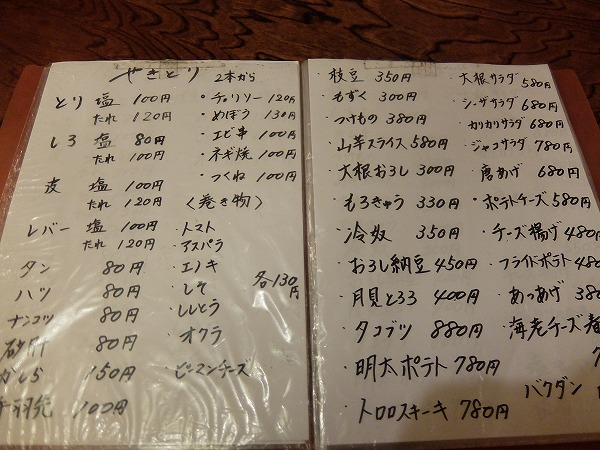 やきとり 2本から
とり 塩 100円
たれ 120円
しろ 塩 80円
たれ 100円
皮 塩 100円
たれ 120円
レバー 塩 100円
たれ 120円
タン 80円
ハツ 80円
ナンコツ 80円
砂肝 80円
かしら 150円
手羽先 100円
・チョリソー 120円
・めぼう 130円
・エビ串 100円
・ネギ焼 100円
・つくね 100円
〈巻き物〉
・トマト
・アスパラ
・エノキ
・しそ
・ししとう
・オクラ
・ピーマンチーズ
各130円
・枝豆 350円
・もずく 300円
・つけもの 380円
・山芋スライス 580円
・大根おろし 300円
・もろきゅう 330円
・冷奴 350円
・おろし納豆 450円
・月見とろろ 400円
・タコブツ 880円
・明太ポテト 780円
・トロロステーキ 780円
・大根サラダ 580円
・シーザサラダ 680円
・カリカリサラダ 680円
・ジャコサラダ 780円
・唐あげ 680円
・ポテトチーズ 580円
・チーズ揚げ 480円
・フライドポテト 480
・あつあげ 380
・海老チーズ春
バクダン